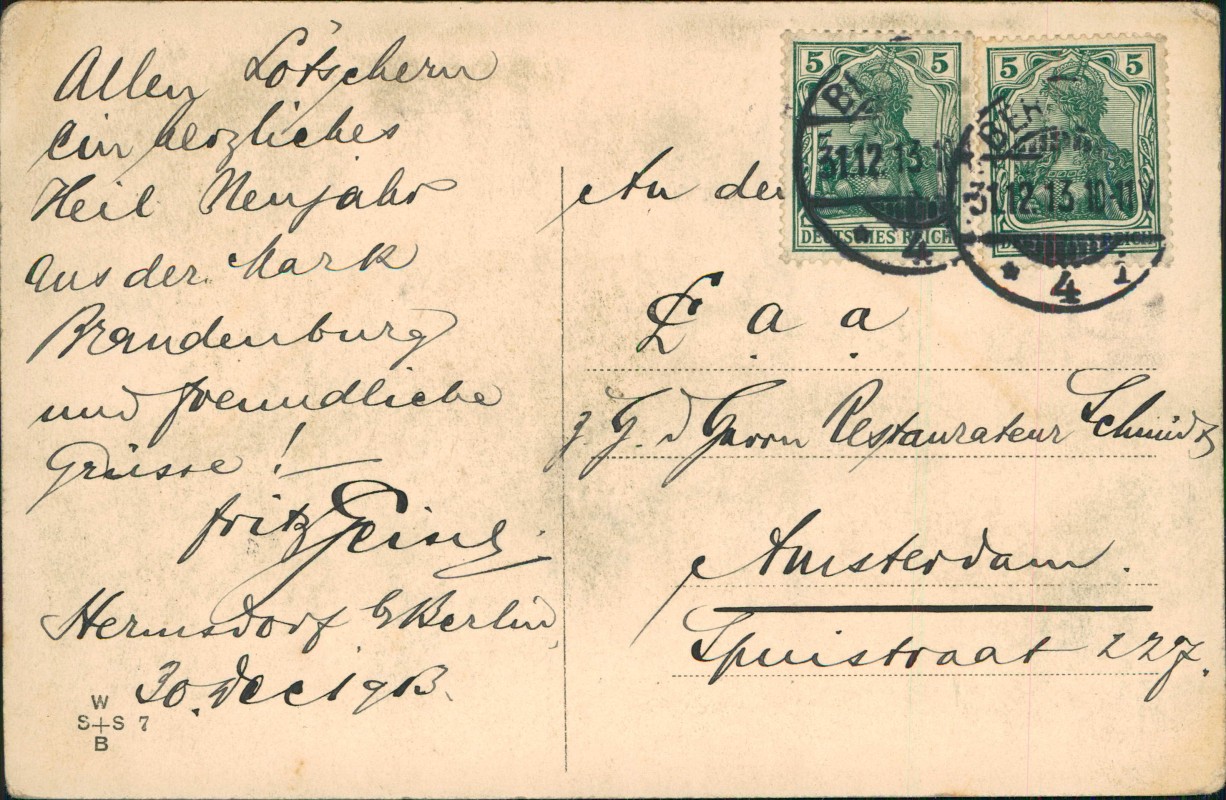 Allen Lötschern
ein herzliches
Heil Neujahr
aus der Mark
Brandenburg
und freundliche
Grüsse!
Fritz
Hermsdorf b/Berlin
30. Dec 1913.
W
S+S 7
B
5 5
5 5
DEUTSCHES REICH
DEUTSCHES REICH
31.12.13
4
BER
31.12.13 10-11V
* 4 i
An den
L. a. a
z. H. d Herrn Restaurateur Schmidt
Amsterdam.
Spuistraat 227.